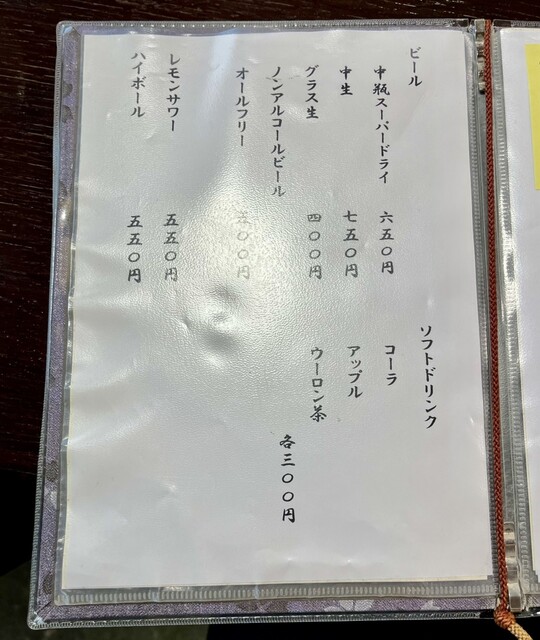 ビール
中瓶スーパードライ 六五〇円
中生 七五〇円
グラス生 四〇〇円
ノンアルコールビール
オールフリー 〇〇円
レモンサワー 五五〇円
ハイボール 五五〇円
ソフトドリンク
コーラ
アップル
ウーロン茶
各三〇〇円